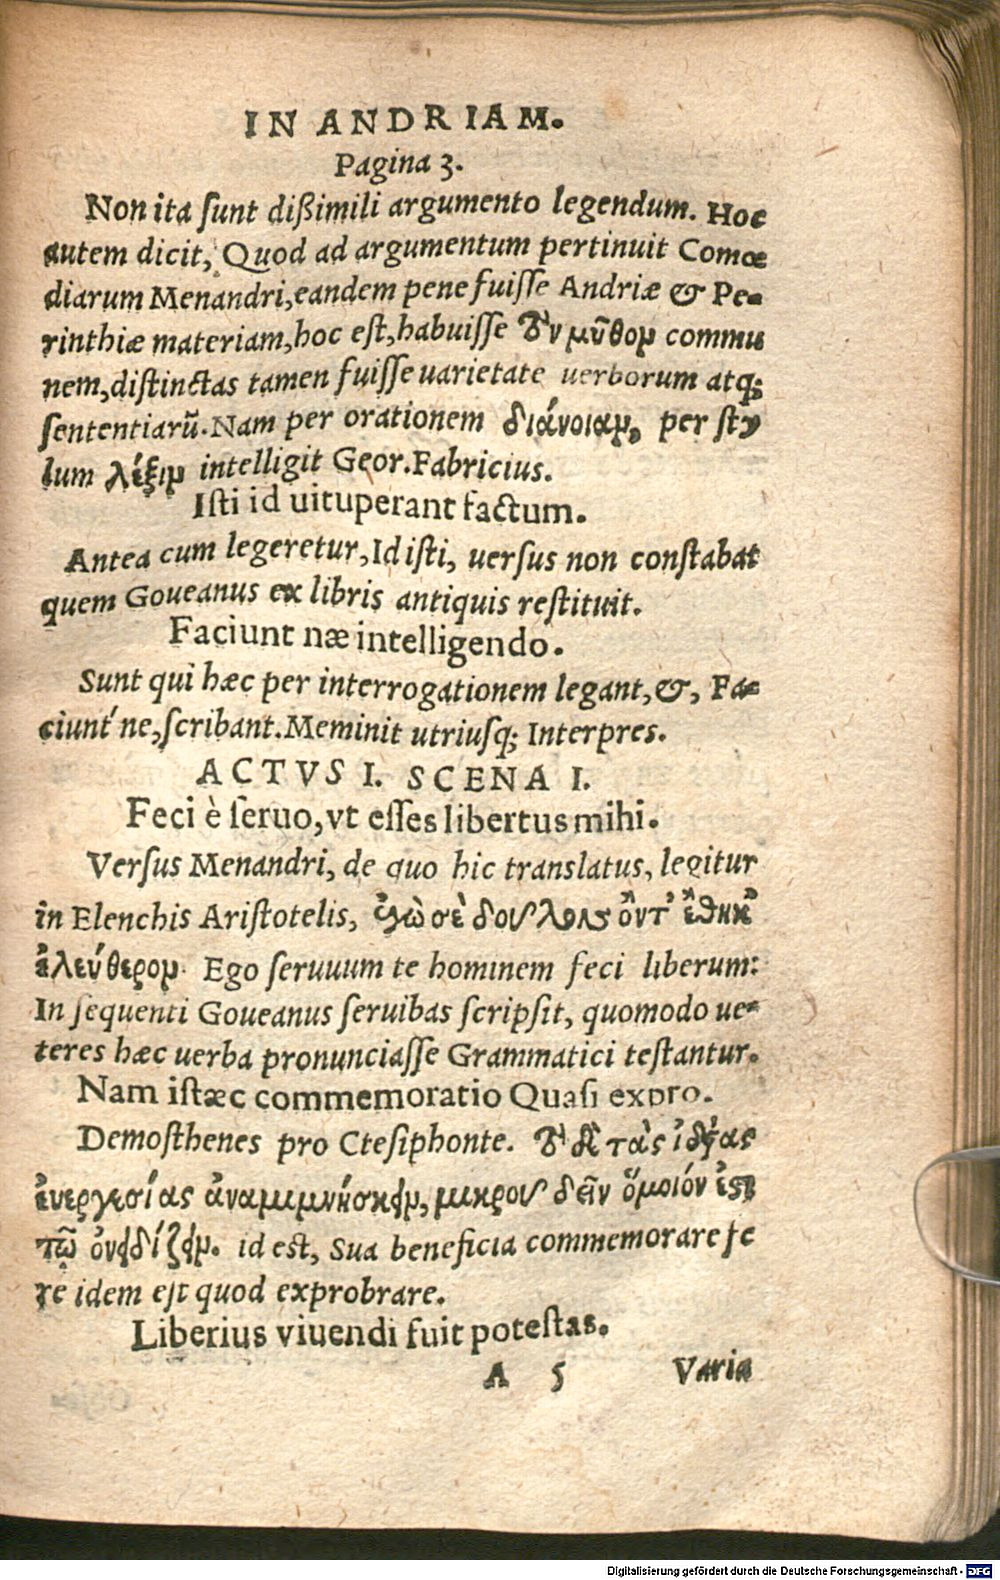 IN ANDRIAM.
Pagina 3.
Non ita sunt dißimili argumento legendum. Hoc
autem dicit, Quod ad argumentum pertinuit Comœ
diarum Menandri, eandem pene fuisse Andriæ & Pe-
rinthiæ materiam, hoc est, habuisse τὸν μῦθον commu
nem, distinctas tamen fuisse uarietate uerborum atq;
sententiarũ. Nam per orationem διάνοιαν, per sty
lum λέξιν intelligit Geor. Fabricius.
Isti id uituperant factum.
Antea cum legeretur, Id isti, uersus non constabat
quem Goueanus ex libris antiquis restituit.
Faciunt næ intelligendo.
Sunt qui hæc per interrogationem legant, &, Fa-
ciunt´ ne, scribant. Meminit utriusq; Interpres.
ACTVS I. SCENA I.
Feci è seruo, vt esses libertus mihi.
Versus Menandri, de quo hic translatus, legitur
in Elenchis Aristotelis, ἐγὼ σὲ δοῦλον ὄντ' ἔθηκ'
ἐλεύθερον. Ego seruuum te hominem feci liberum:
In sequenti Goueanus seruibas scripsit, quomodo ue-
teres hæc uerba pronunciasse Grammatici testantur.
Nam istæc commemoratio Quasi expro.
Demosthenes pro Ctesiphonte. τὸ δὲ τὰς ἰδίας
ἐνεργεσίας ἀναμιμνήσκειν, μικροῦ δεῖν ὅμοιόν ἐστι
τῷ ὀνειδίζειν. id est, Sua beneficia commemorare fe
re idem est quod exprobrare.
Liberius viuendi fuit potestas.
A 5 Varia
Digitalisierung gefördert durch die Deutsche Forschungsgemeinschaft - DFG